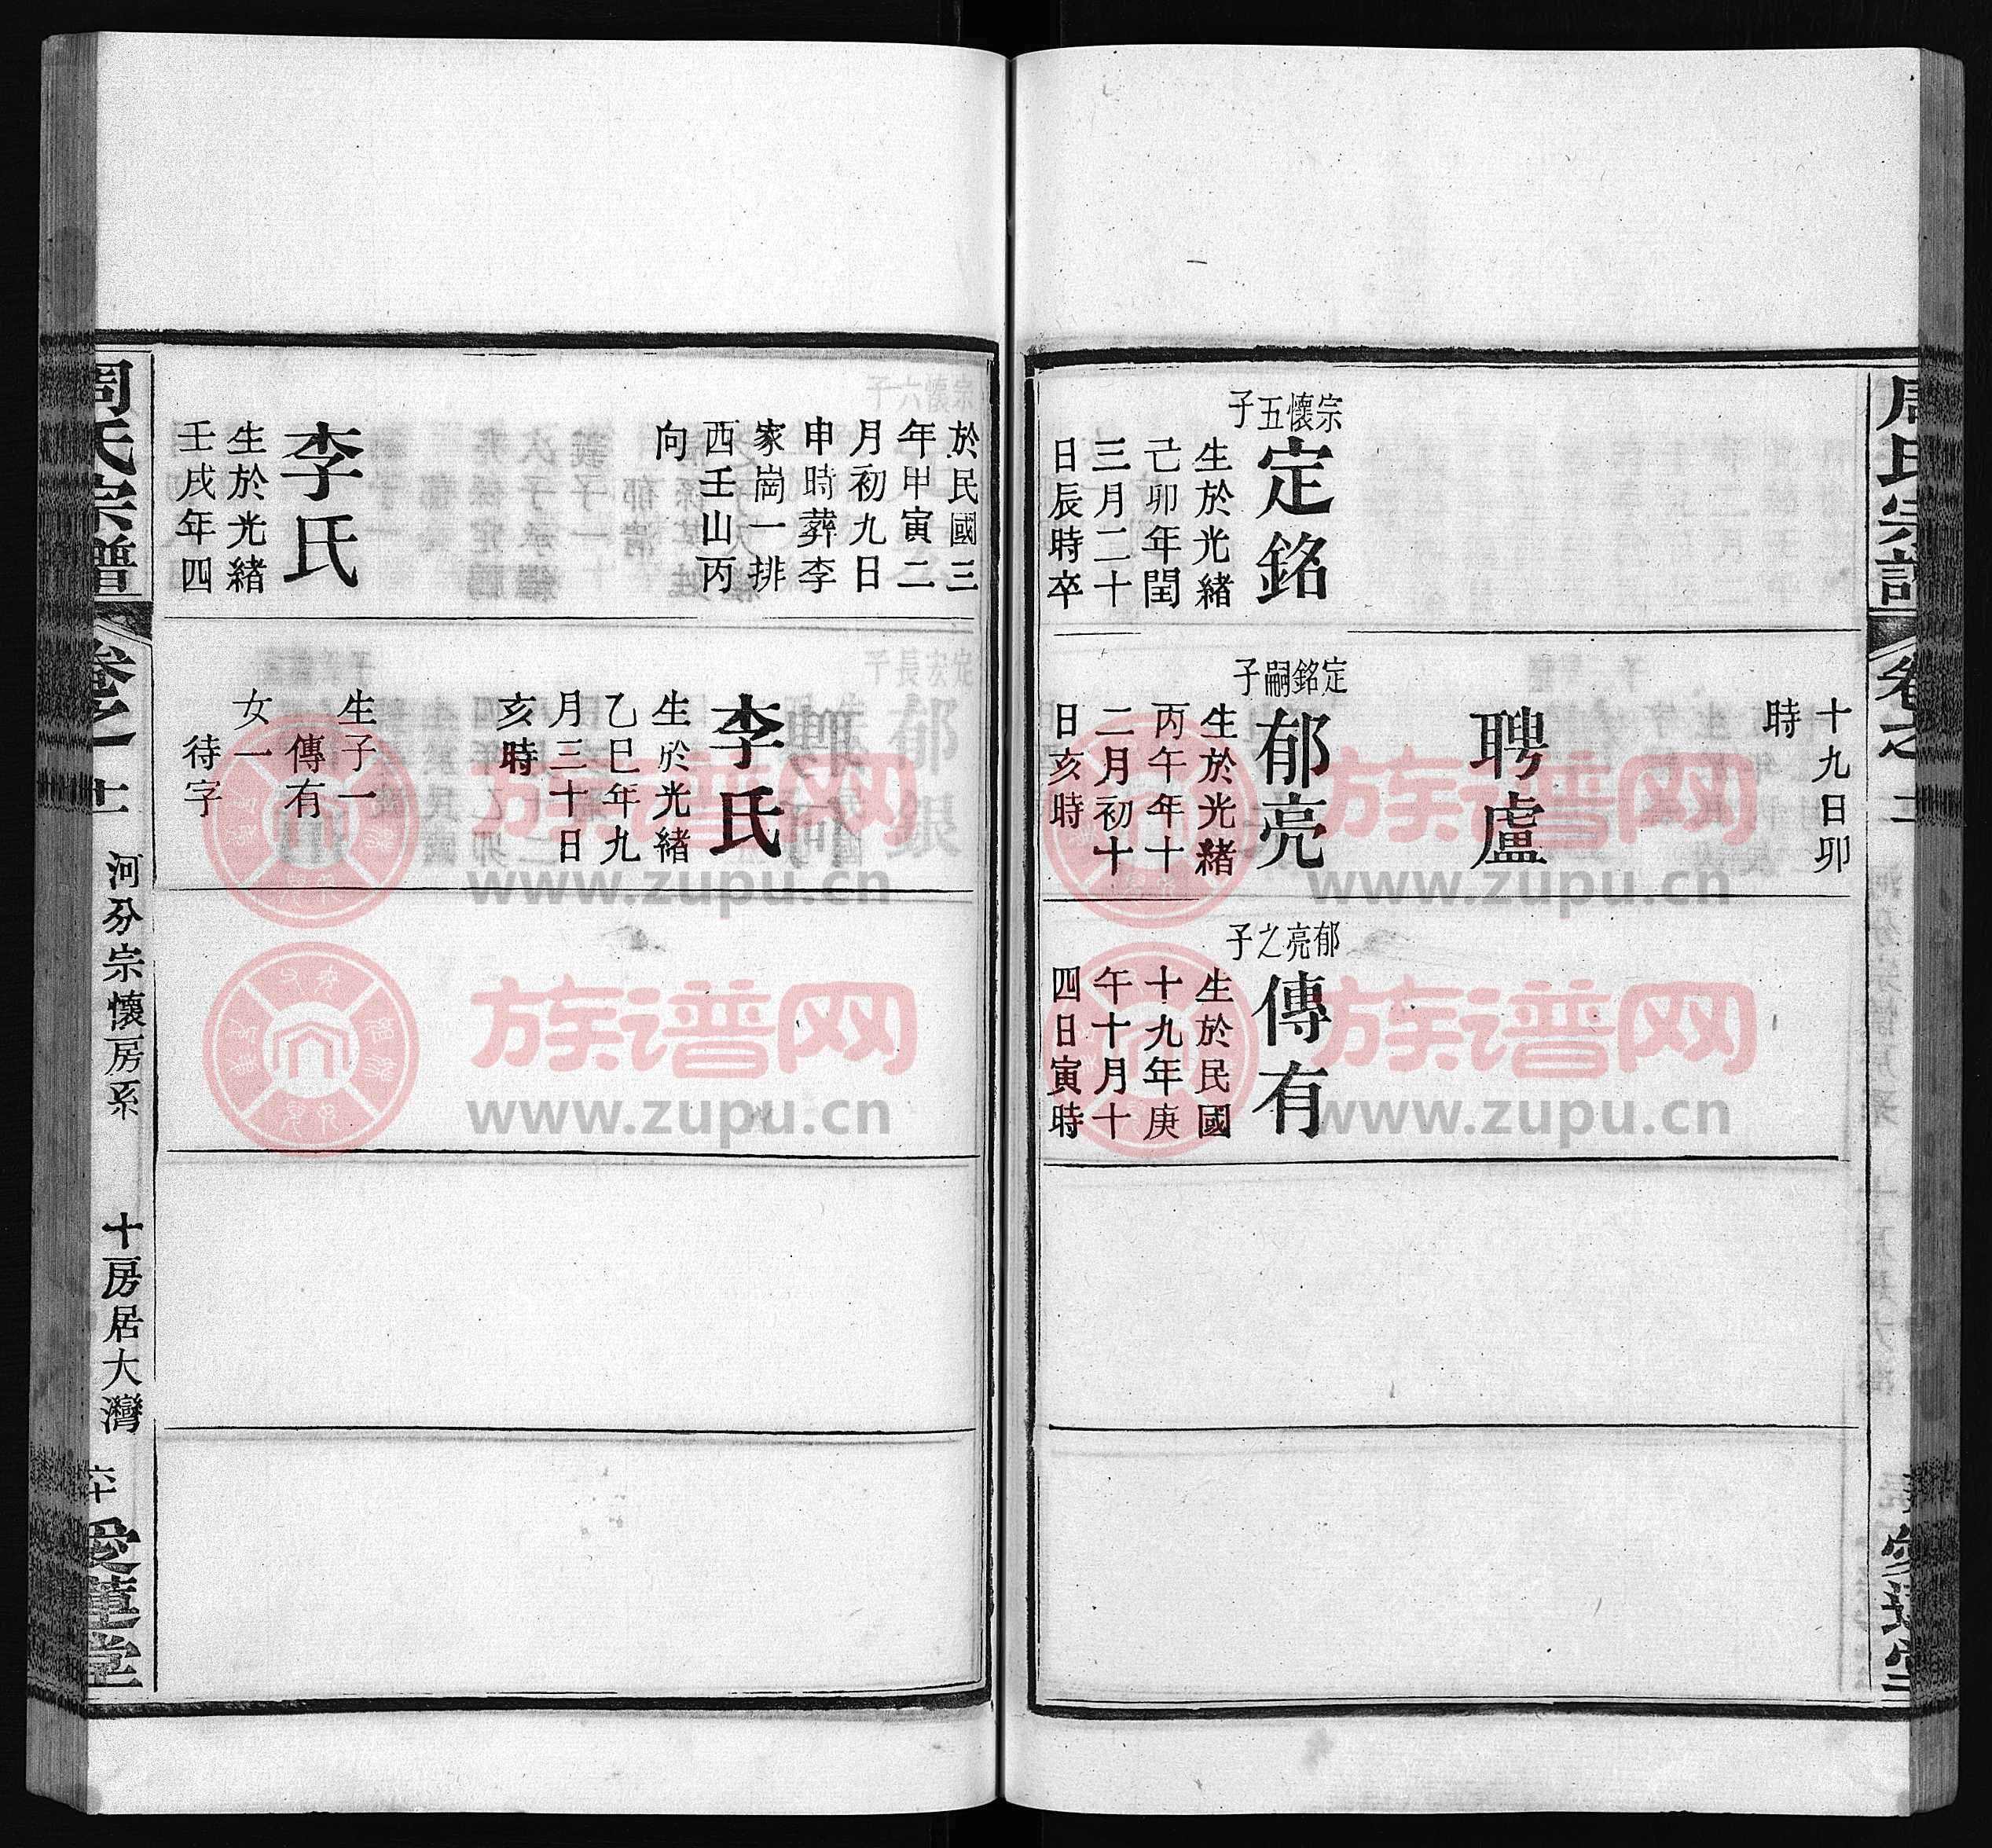 十九日卯
時
聘盧
宗懷五子
定銘
生於光緒
己卯年閏
三月二十
日辰時卒
定銘嗣子
郁亮
生於光緒
丙午年十
二月初十
日亥時
郁亮之子
傳有
生於民國
十九年庚
午十月十
四日寅時
於民國三
年甲寅二
月初九日
申時葬李
家崗一排
西壬山丙
向
李氏
生於光緒
壬戌年四
李氏
生於光緒
乙巳年九
月三十日
亥時
生子一
傳有
女一
待字
周氏宗譜
卷之十二
河分宗懷房系
十房居大灣
六十
愛蓮堂
族谱网
www.zupu.cn
族谱网
www.zupu.cn
族谱网
www.zupu.cn
族谱网
www.zupu.cn